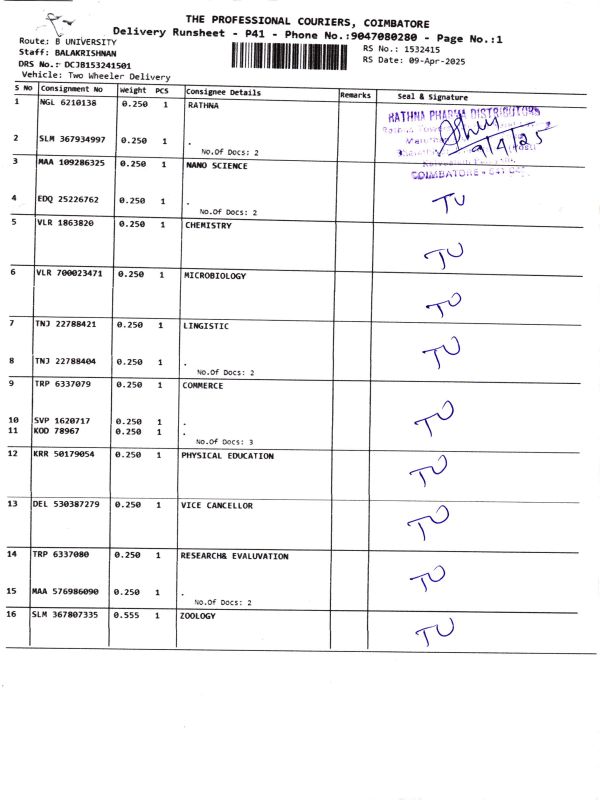 THE PROFESSIONAL COURIERS, COIMBATORE
Delivery Runsheet - P41 - Phone No.:9047080280 - Page No.:1
Route: B UNIVERSITY
RS No.: 1532415
Staff: BALAKRISHNAN
RS Date: 09-Apr-2025
DRS No.: DCJB153241501
Vehicle: Two Wheeler Delivery
S No Consignment No Weight PCS Consignee Details Remarks Seal & Signature
1 NGL 6210138 0.250 1 RATHNA
RATHNA PHARMA DISTRIBUTORS
9/4/25
COIMBATORE
2 SLM 367934997 0.250 1 .
No.Of Docs: 2
3 MAA 109286325 0.250 1 NANO SCIENCE
4 EDQ 25226762 0.250 1 . TU
No.Of Docs: 2
5 VLR 1863820 0.250 1 CHEMISTRY
TU
6 VLR 700023471 0.250 1 MICROBIOLOGY
TU
7 TNJ 22788421 0.250 1 LINGISTIC
TU
8 TNJ 22788404 0.250 1 .
No.Of Docs: 2
9 TRP 6337079 0.250 1 COMMERCE
TU
10 SVP 1620717 0.250 1 .
11 KOD 78967 0.250 1 .
No.Of Docs: 3
12 KRR 50179054 0.250 1 PHYSICAL EDUCATION
TU
13 DEL 530387279 0.250 1 VICE CANCELLOR
TU
14 TRP 6337080 0.250 1 RESEARCH& EVALUVATION
TU
15 MAA 576986090 0.250 1 .
No.Of Docs: 2
16 SLM 367807335 0.555 1 ZOOLOGY
TU